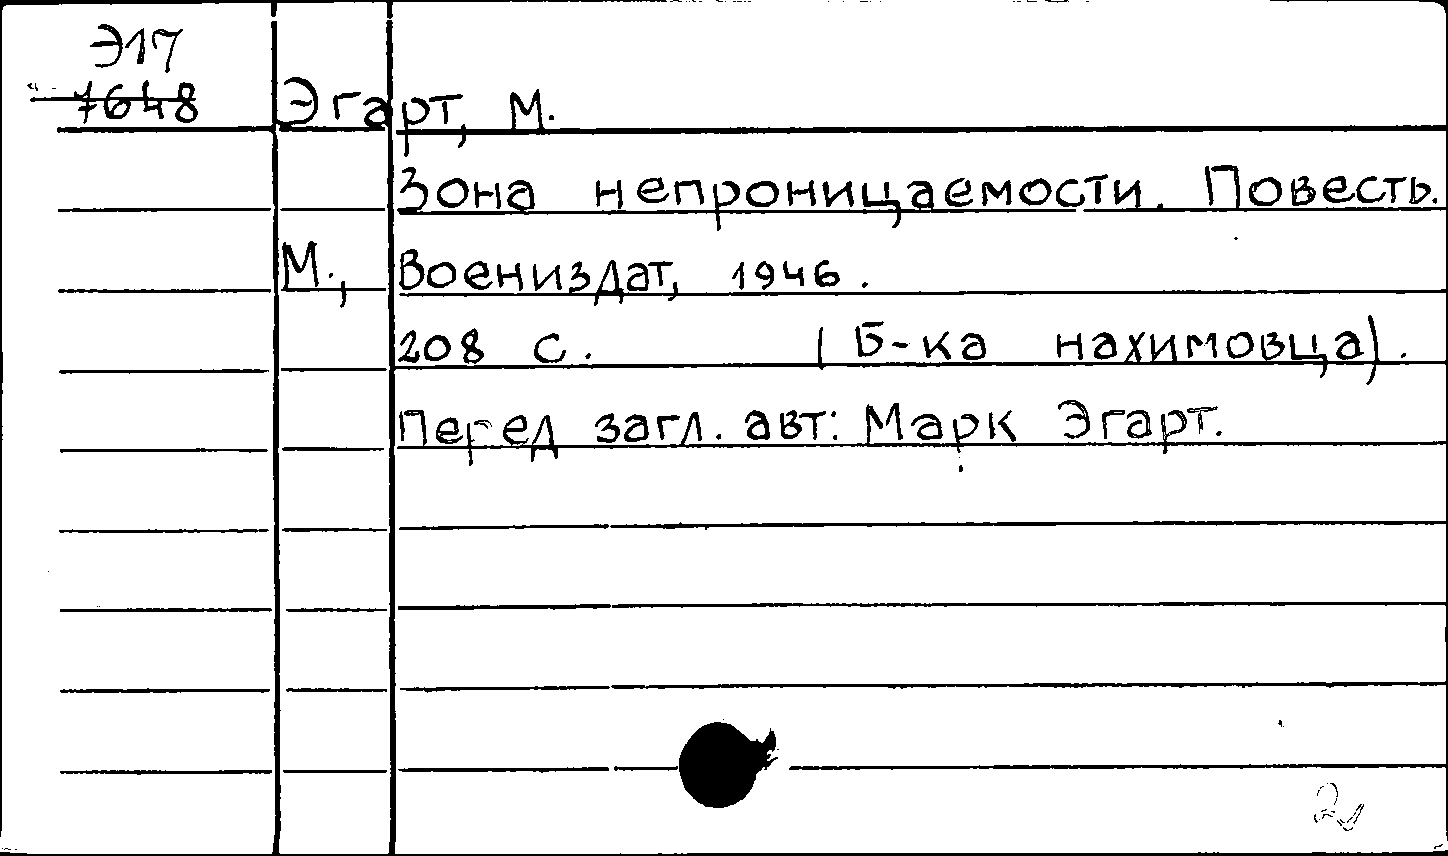 Э17
7648
Эгарт, М.
Зона непроницаемости. Повесть.
М., Воениздат, 1946.
208 с. (Б-ка нахимовца).
Перед загл. авт: Марк Эгарт.